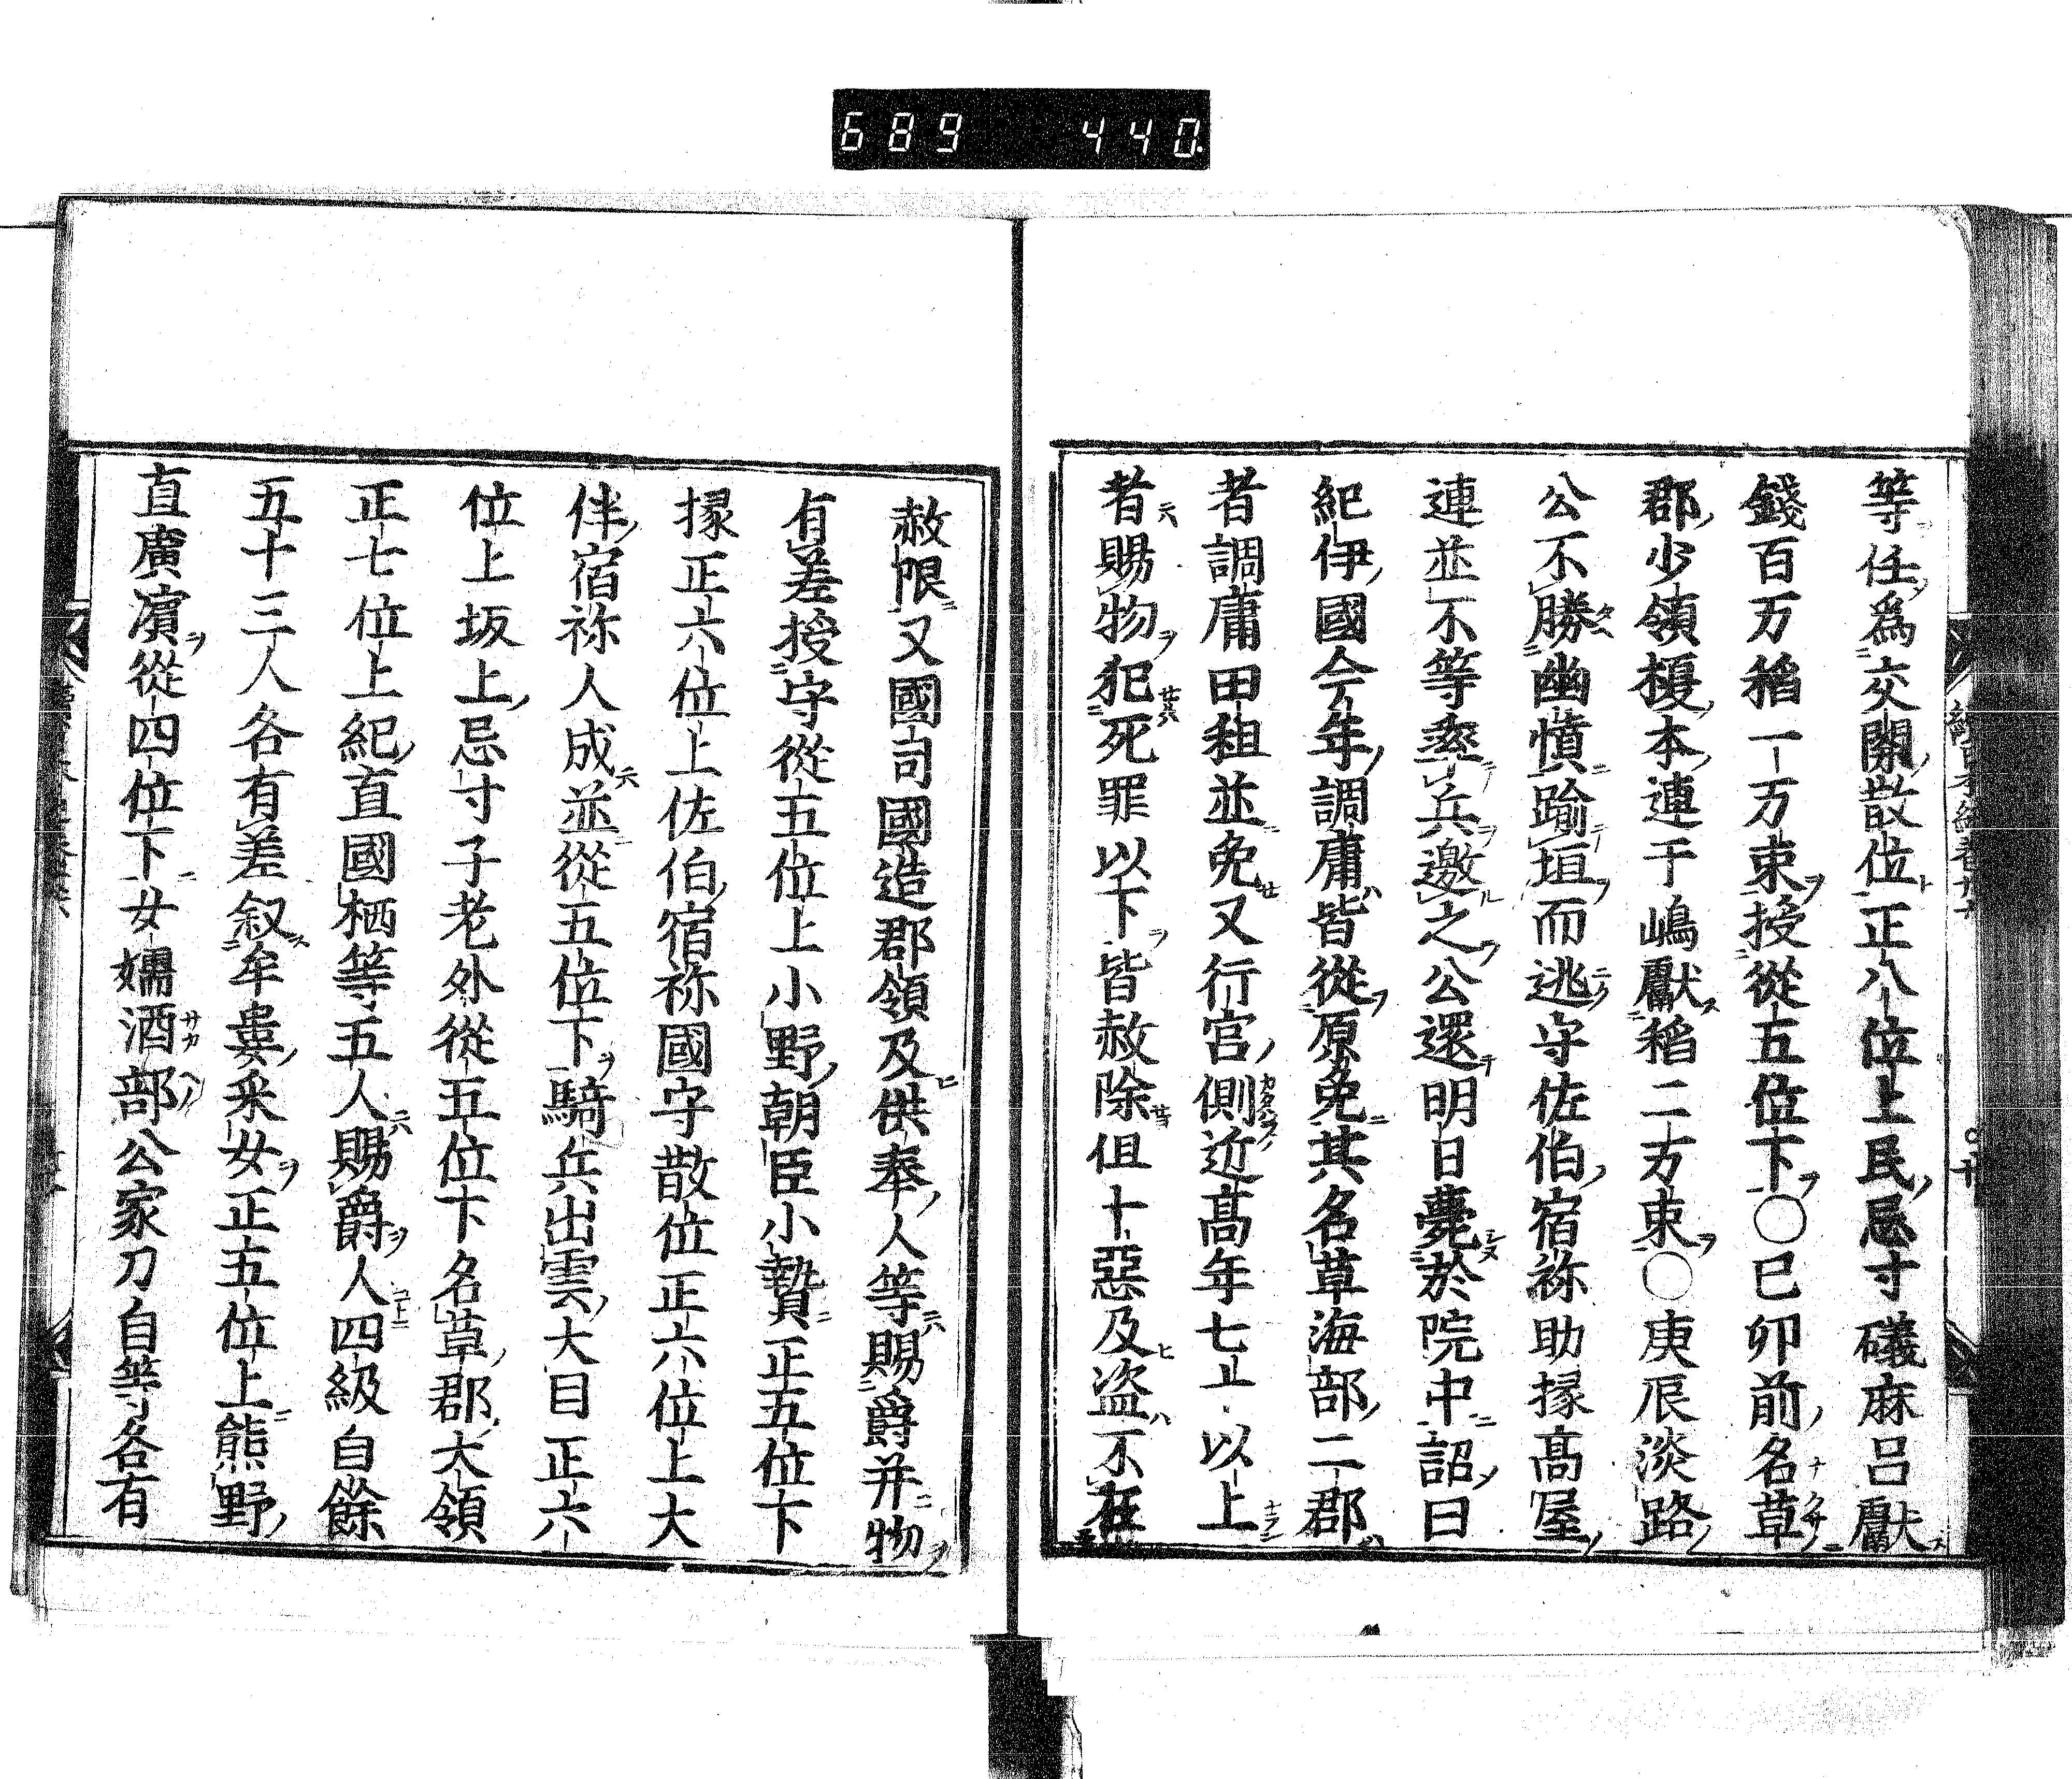 689 440
等任爲交關散位正八位上民忌寸礒麻呂獻
錢百万稻一万束授從五位下○己卯前名草
郡少領榎本連千嶋獻稻二万束○庚辰淡路
公不勝幽憤踰垣而逃守佐伯宿祢助掾高屋
連並不等率兵邀之公還明日薨於院中詔曰
紀伊國今年調庸皆從原免其名草海部二郡
者調庸田租並免又行宮側近高年七十以上
者賜物犯死罪以下皆赦除但十惡及盗不在
赦限又國司國造郡領及供奉人等賜爵并物
有差授守從五位上小野朝臣小贄正五位下
掾正六位上佐伯宿祢國守散位正六位上大
伴宿祢人成並從五位下騎兵出雲大目正六
位上坂上忌寸子老外從五位下名草郡大領
正七位上紀直國栖等五人賜爵人四級自餘
五十三人各有差叙牟婁采女正五位上熊野
直廣濱從四位下女嬬酒部公家刀自等各有